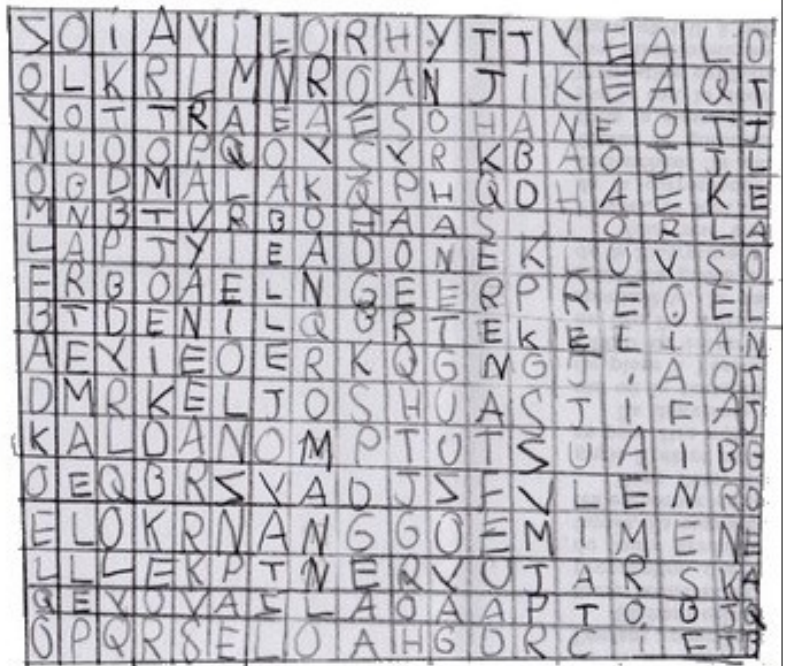 S O i A V I L O R H Y T T V E A L O
O L K R L M N R O A N J I K E A Q T
Y O T T R A E A E S O H A N E O T J
N U O O P Q O Y S Y R K B A O J J L
O B D M A L A K Q P H Q D H A E K E
M N B T V R B O H A A S I O R L A
L A P J Y I E A D O N E K L U V S O
E R B O A E L N G E E R P R E O E L
B T D E N I L Q B R T E K E L I A N
A E Y I E O E R K Q G N G J . A O J
D M R K E L J O S H U A S J I F A J
K A L D A N O M P T U T S U A I B G
O E Q B R S V A D J S F V L E N R O
E L O K R N A N G G O E M I M E N E
L L L E K P T N E R V U J A R S K A
Q E Y O V A I L A O A A P T O B J Q
O P Q R S E L O A H G O R C i F J B